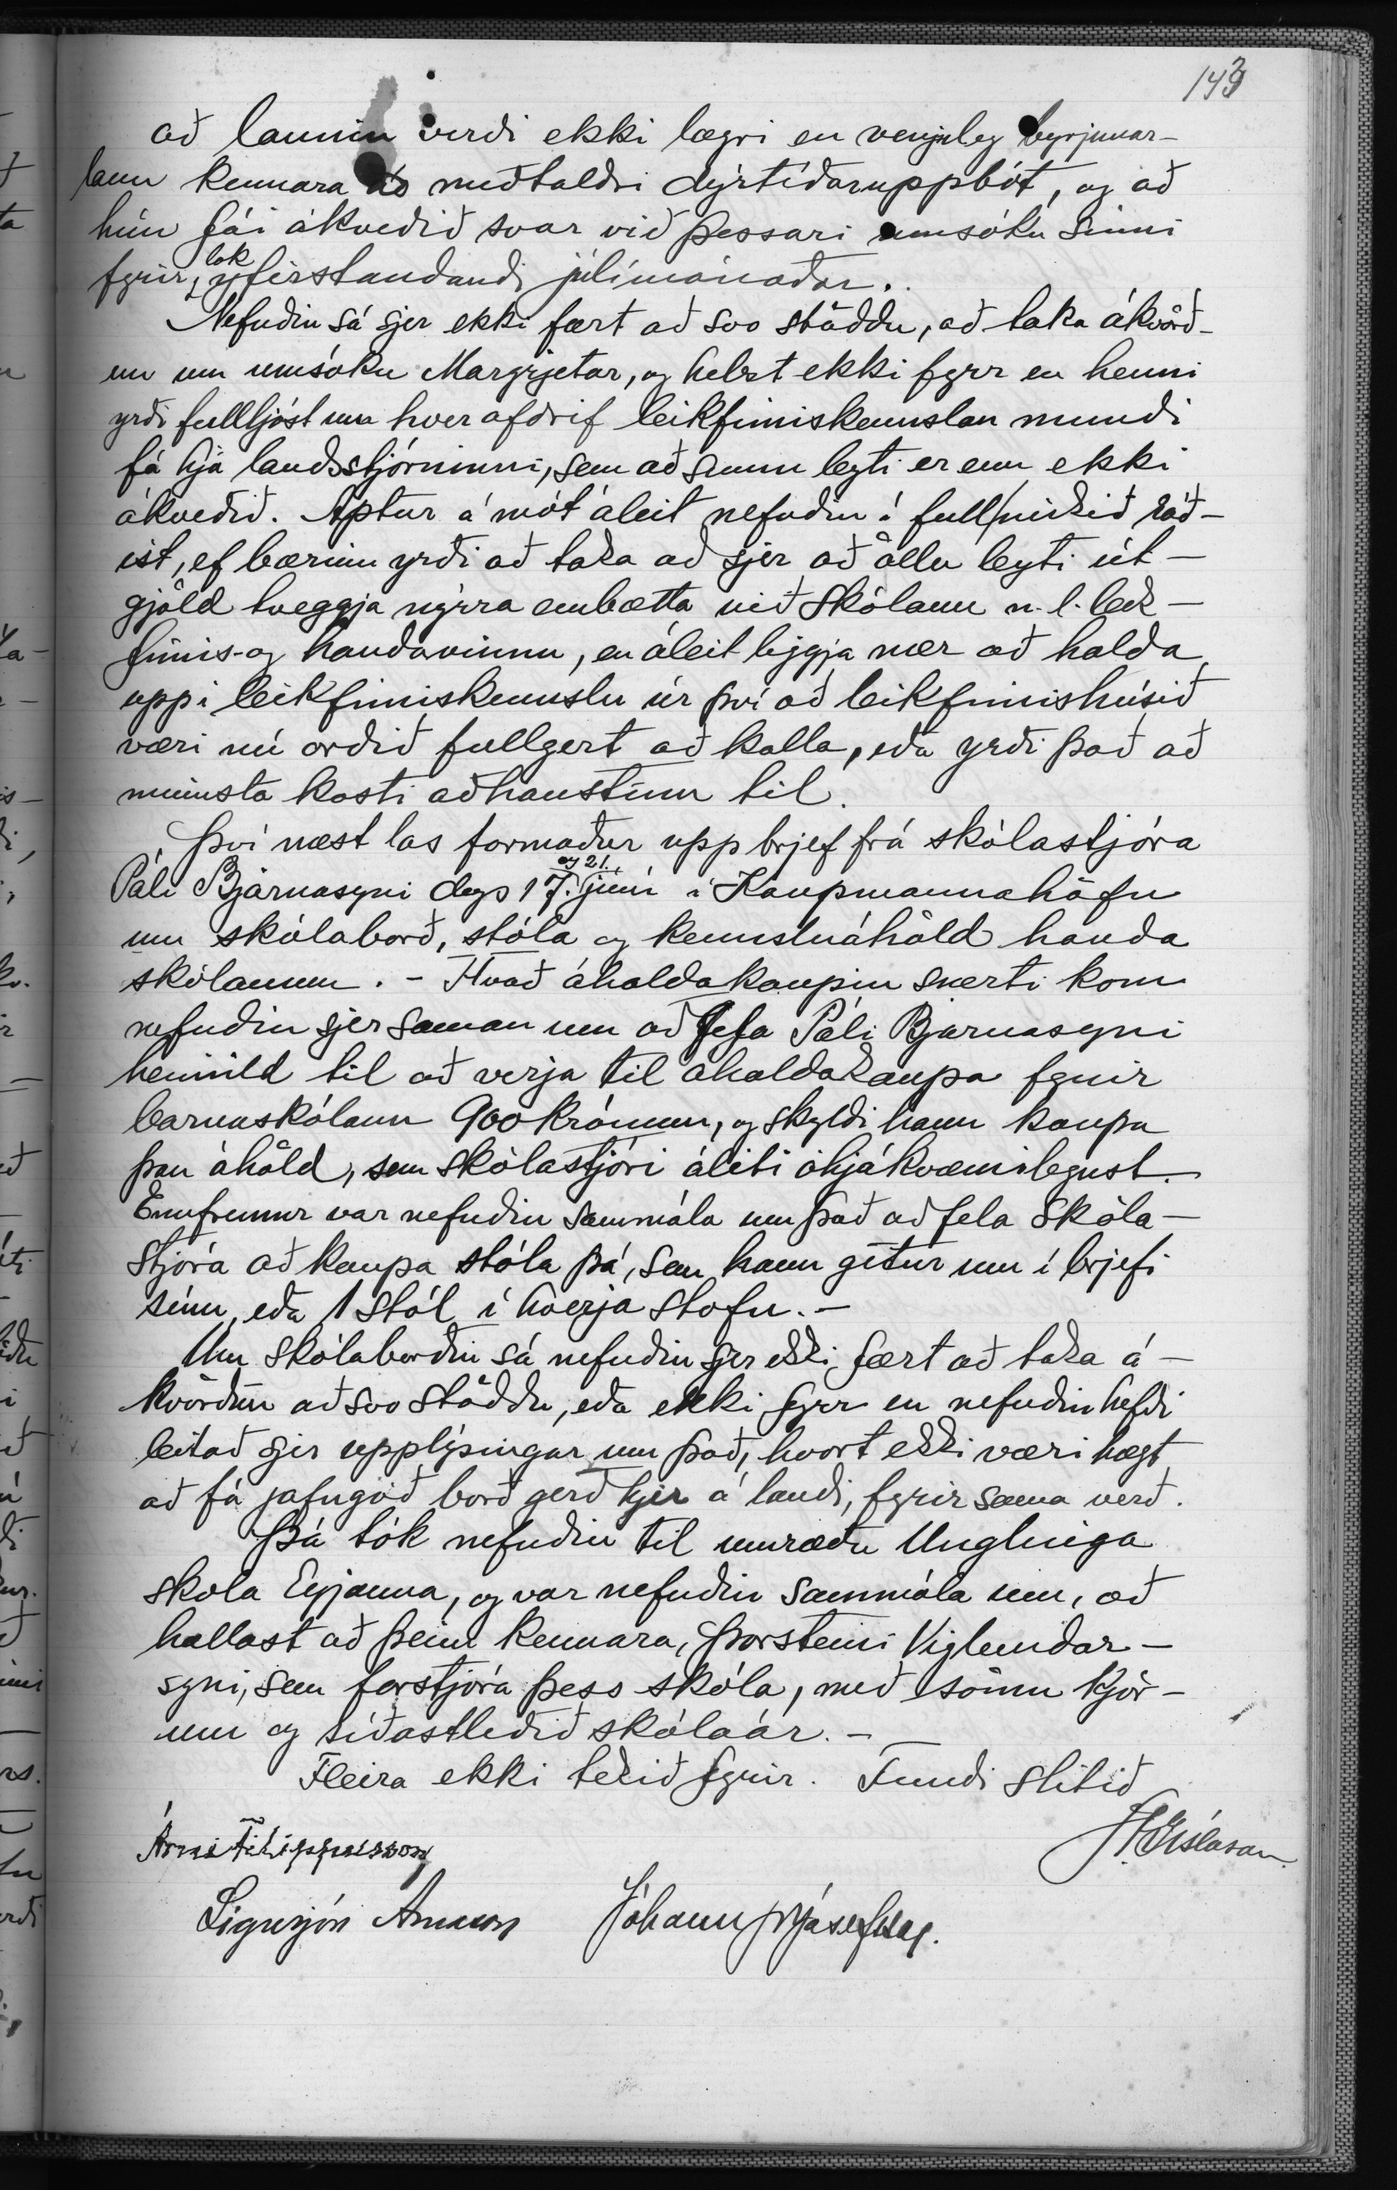 143
að launin verði ekki lægri en venjuleg byrjunar-
laun kennara að meðtaldri dýrtíðaruppbót, og að
hún fái ákveðið svar við þessari umsókn sinni
fyrir lok yfirstandandi júlímánaðar.
Nefndin sá sjer ekki fært að svo stöddu, að taka ákvörð-
un um umsókn Margrjetar, og helzt ekki fyrr en henni
yrði fullljóst um hver afdrif leikfimiskennslan mundi
fá hjá landsstjórninni, sem að sumu leyti er enn ekki
ákveðið. Aptur á mót áleit nefndin í full mikið ráð-
ist, ef bærinn yrði að taka að sjer að öllu leyti út-
gjöld tveggja nýrra embætta við skólann n.l. leik-
fimis- og handavinnu, en áleit liggja nær að halda
uppi leikfimiskennslu úr því að leikfimishúsið
væri nú orðið fullgert að kalla, eða yrði það að
minnsta kosti að haustinu til.
Því næst las formaður upp brjef frá skólastjóra
Páli Bjarnasyni dags 17. og 21. júní í Kaupmannahöfn
um skólaborð, stóla og kennsluáhöld handa
skólanum. - Hvað áhaldakaupin snerti kom
nefndin sjer saman um að gefa Páli Bjarnasyni
heimild til að verja til áhaldakaupa fyrir
barnaskólann 900 krónum, og skyldi hann kaupa
þau áhöld, sem skólastjóri áliti óhjákvæmilegust.
Ennfremur var nefndin sammála um það að fela skóla-
stjóra að kaupa stóla þá, sem hann getur um í brjefi
sínu, eða 1 stól í hverja stofu. -
Um skólaborðin sá nefndin sjer ekki fært að taka á-
kvörðun að svo stöddu, eða ekki fyrr en nefndin hefði
leitað sjer upplýsingar um það, hvort ekki væri hægt
að fá jafngóð borð gerð hjer á landi, fyrir sama verð.
Þá tók nefndin til umræðu Unglinga
skola Eyjanna, og var nefndin sammála um, að
hallast að þeim kennara, Þorsteini Víglundar-
syni, sem forstjóra þess skóla, með sömu kjör-
um og síðastliðið skólaár. -
Fleira ekki tekið fyrir. Fundi slitið
Árni Filippusson
J.P. Gíslason
Sigurjón Árnason Jóhann Þ Jósefsson.